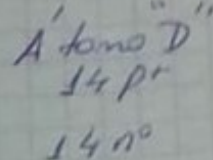 Átomo "D"
14 p+
14 n°